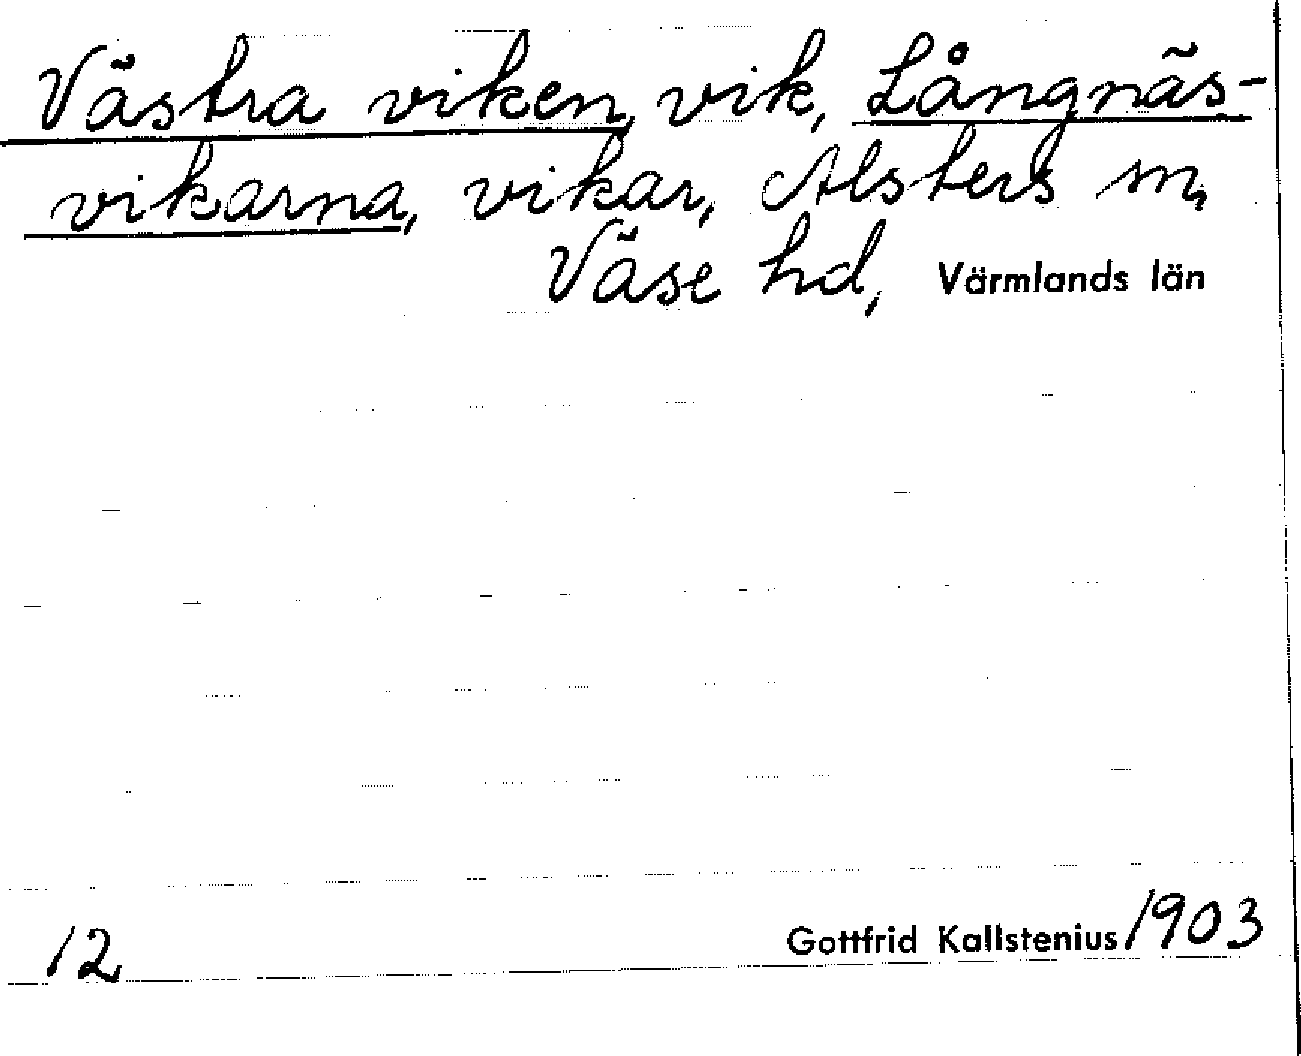 Västra viken, vik, Långnäs-
vikarna, vikar, Alsters sn,
Väse hd, Värmlands län
12 Gottfrid Kallstenius 1903